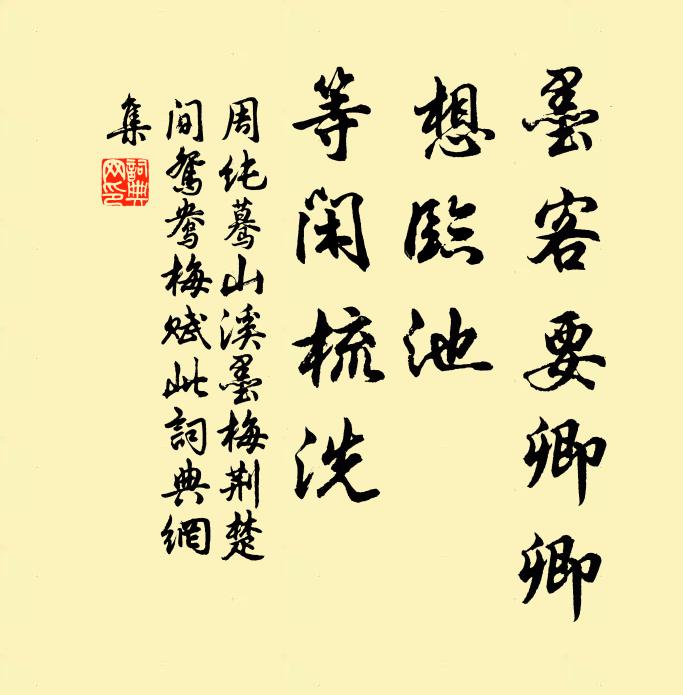 墨客要卿卿
想臨池
等闲梳洗
周純驀山溪墨梅荆楚
间鸳鸯梅赋此詞典網
集
詞典網印